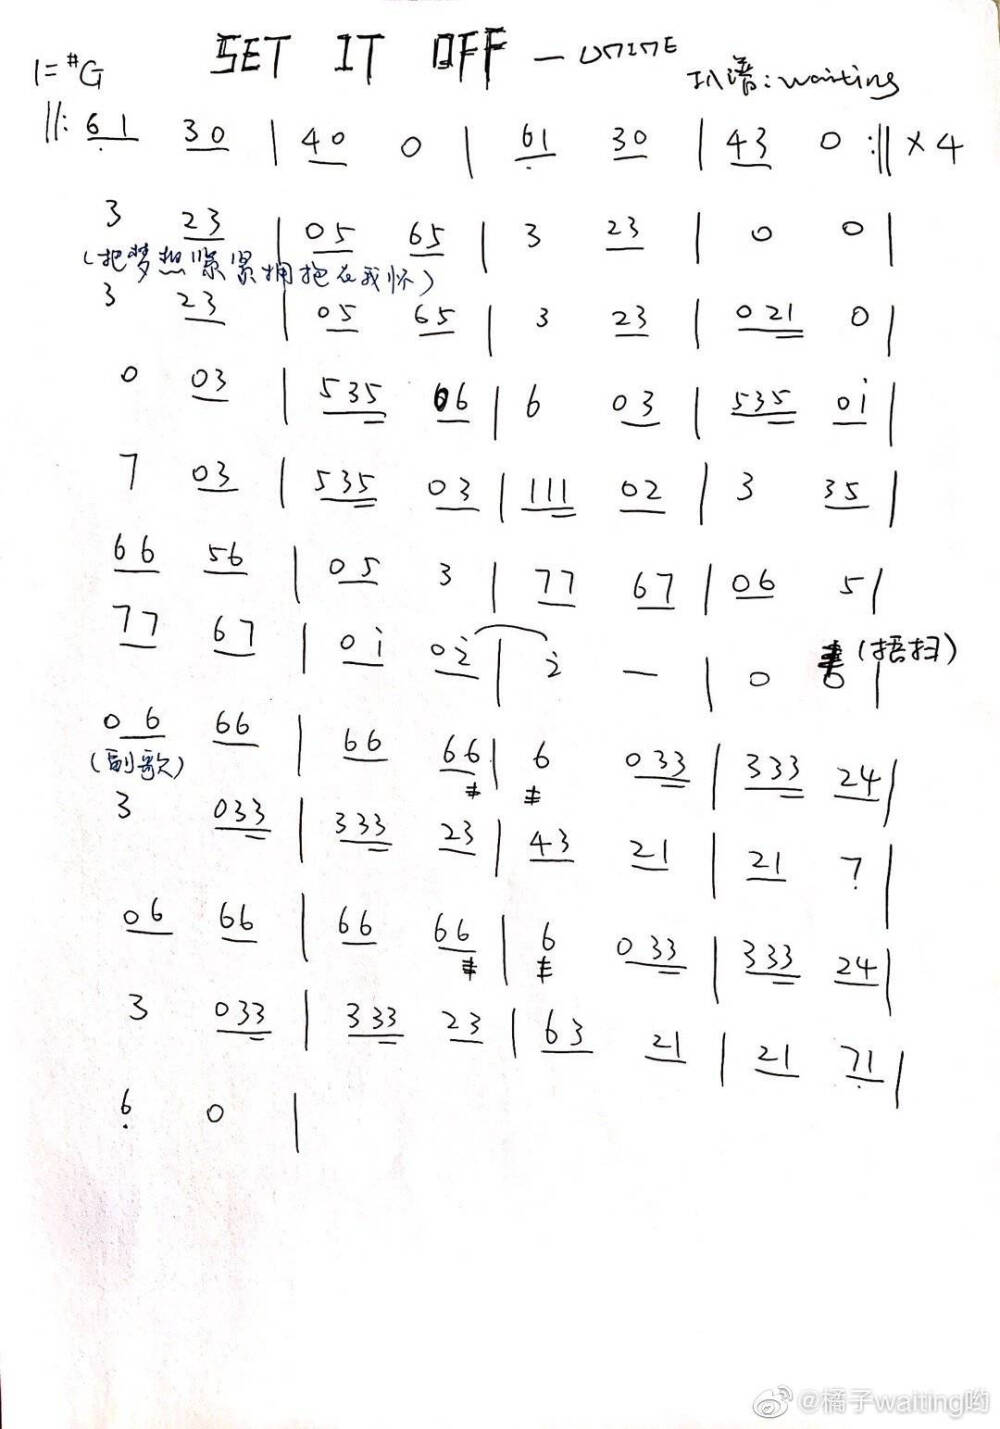 SET IT OFF — UNINE
1=#G
扒谱:waiting
||: 61 30 | 40 0 | 61 30 | 43 0 :|| ×4
3 23 | 05 65 | 3 23 | 0 0 |
(把梦想紧紧拥抱在我怀)
3 23 | 05 65 | 3 23 | 021 0 |
0 03 | 535 06 | 6 03 | 535 0i |
7 03 | 535 03 | 111 02 | 3 35 |
66 56 | 05 3 | 77 67 | 06 5 |
77 67 | 0i 0i | i — | 0 0 | (捂扫)
06 66 | 66 66 | 6 033 | 333 24 |
(副歌)
3 033 | 333 23 | 43 21 | 21 7 |
06 66 | 66 66 | 6 033 | 333 24 |
3 033 | 333 23 | 63 21 | 21 71 |
6 0 |
@橘子waiting哟